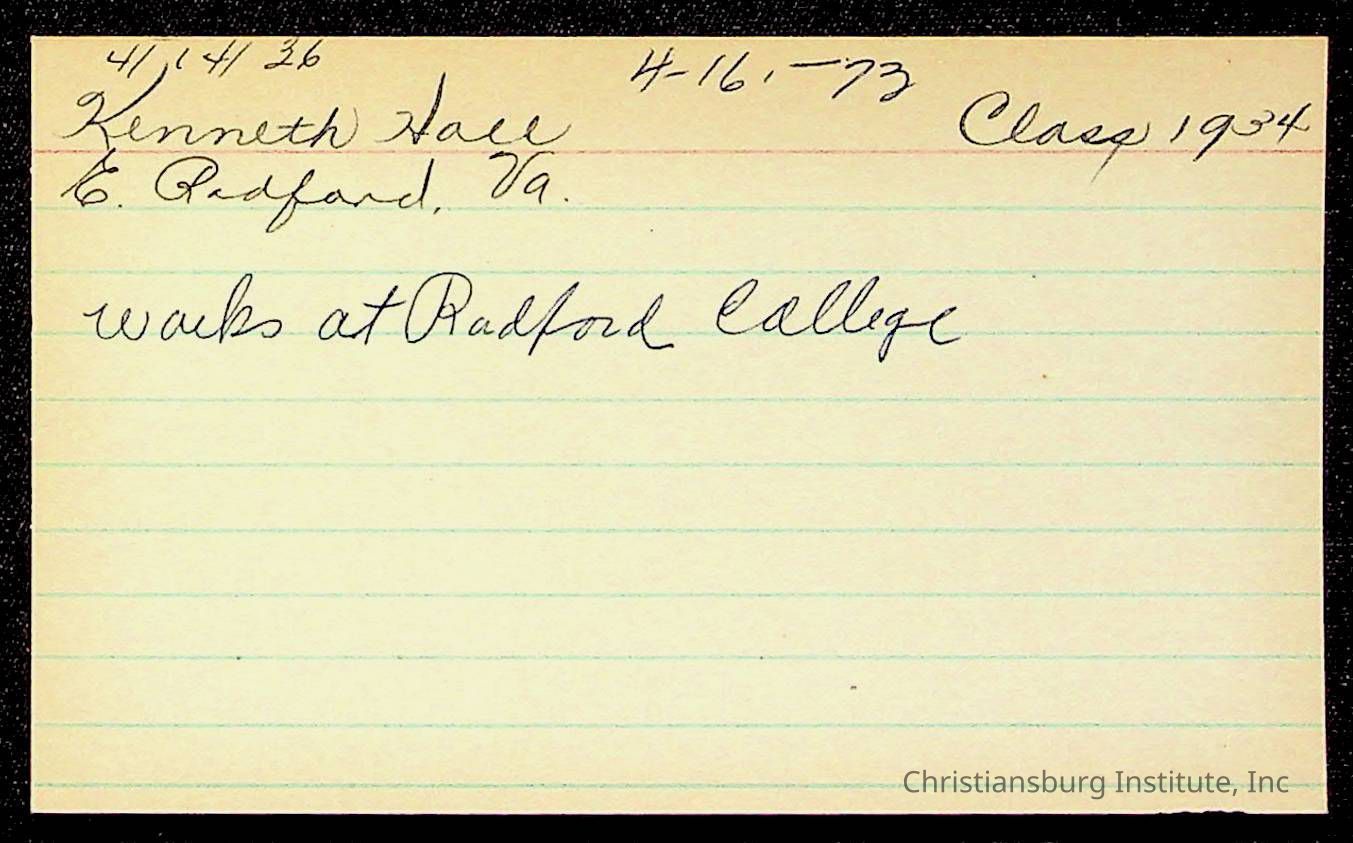 4-16,-73
Kenneth Hall Class 1934
E. Radford, Va.
works at Radford College
Christiansburg Institute, Inc